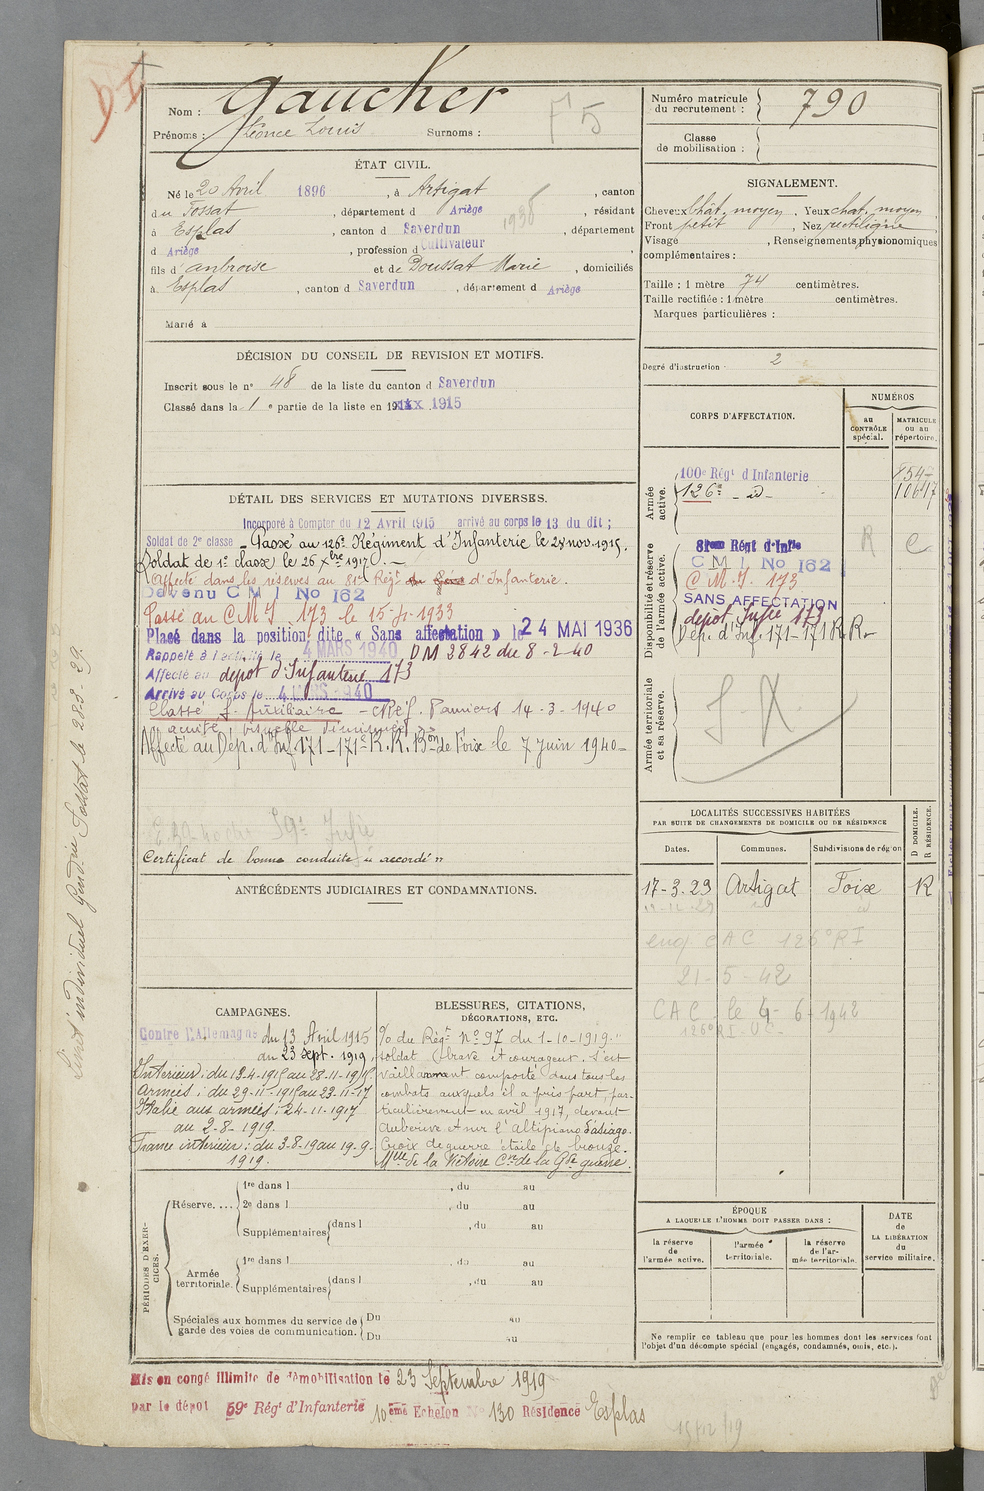 D I
Nom : Gaucher
Prénoms : Léonce Louis Surnoms :
F 5
Numéro matricule du recrutement : 790
Classe de mobilisation :
ÉTAT CIVIL.
Né le 20 Avril 1896, à Artigat, canton
du Fossat, département d Ariège, résidant
à Esplas, canton d Saverdun, département
d Ariège, profession d Cultivateur
fils d' Ambroise et de Doussat Marie, domiciliés
à Esplas, canton d Saverdun, département d Ariège
Marié à
1936
SIGNALEMENT.
Cheveux chât. moyen, Yeux chat. moyen,
Front petit, Nez rectiligne,
Visage , Renseignements physionomiques
complémentaires :
Taille : 1 mètre 74 centimètres.
Taille rectifiée : 1 mètre centimètres.
Marques particulières :
Degré d'instruction 2
DÉCISION DU CONSEIL DE REVISION ET MOTIFS.
Inscrit sous le n° 48 de la liste du canton d Saverdun
Classé dans la 1e partie de la liste en 1915
DÉTAIL DES SERVICES ET MUTATIONS DIVERSES.
Incorporé à Compter du 12 Avril 1915 arrivé au corps le 13 du dit ;
Soldat de 2e classe _ Passé au 126e Régiment d'Infanterie le 28 nov. 1915.
Soldat de 1e classe le 26 Xbre 1917.
Affecté dans les réserves au 81e Régt d'Infanterie.
Devenu C M I No 162
Passé au C M I 173 le 15-4-1933
Placé dans la position dite « Sans affectation » le 24 MAI 1936
Rappelé à l'activité le 4 MARS 1940 DM 2842 du 8-2-40
Affecté au dépôt d'Infanterie 173
Arrivé au Corps le 4 MARS 1940
Classé S. Auxiliaire - C Réf. Pamiers 14-3-1940
acuité visuelle diminuée
Affecté au Dép. d'Inf. 171-171e R.R. Bon de Foix le 7 Juin 1940
Certificat de bonne conduite « accordé »
CORPS D'AFFECTATION.
NUMÉROS
au CONTRÔLE spécial.
MATRICULE ou au répertoire.
Armée active.
100e Régt d'Infanterie
126e _ d° -
10617
Disponibilité et réserve de l'armée active.
81eme Régt d'Infie
C M I No 162
C M I 173
SANS AFFECTATION
dépot Infie 173
Dép. d'Inf. 171-171 R.R.
R
C
Armée territoriale et sa réserve.
S.X.
LOCALITÉS SUCCESSIVES HABITÉES
PAR SUITE DE CHANGEMENTS DE DOMICILE OU DE RÉSIDENCE
D DOMICILE. R RÉSIDENCE.
Dates. Communes. Subdivisions de région
17-3-29 Artigat Foix R
enq CAC 126e RI
21-5-42
CAC le 4-6-1942
126e RI
ANTÉCÉDENTS JUDICIAIRES ET CONDAMNATIONS.
CAMPAGNES.
Contre l'Allemagne du 13 Avril 1915
au 23 sept. 1919.
Intérieur : du 13-4-1915 au 28-11-1915
Armées : du 29-11-1915 au 23-11-17
Italie aux armées : 24-11-1917
au 2-8-1919.
France intérieur : du 3-8-19 au 19-9-
1919.
BLESSURES, CITATIONS,
DÉCORATIONS, ETC.
O/ du Régt n° 97 du 1-10-1919 "
soldat brave et courageux. S'est
vaillamment comporté dans tous les
combats auxquels il a pris part, par-
ticulièrement en avril 1917, devant
Auberive et sur l'Altipiano d'asiago.
Croix de guerre étoile de bronze.
Mlle de la Victoire Cve de la Gde guerre.
PÉRIODES D'EXERCICES.
Réserve....
1re dans l , du au
2e dans l , du au
Supplémentaires dans l , du au
Armée territoriale.
1re dans l , du au
Supplémentaires dans l , du au
Spéciales aux hommes du service de garde des voies de communication.
Du au
Du au
ÉPOQUE
A LAQUELLE L'HOMME DOIT PASSER DANS :
la réserve de l'armée active.
l'armée territoriale.
la réserve de l'armée territoriale.
DATE de LA LIBÉRATION du service militaire.
Ne remplir ce tableau que pour les hommes dont les services font
l'objet d'un décompte spécial (engagés, condamnés, omis, etc.).
Mis en congé illimité de démobilisation le 23 Septembre 1919
par le dépôt 59e Régt d'Infanterie 10eme Echelon No 130 Résidence Esplas